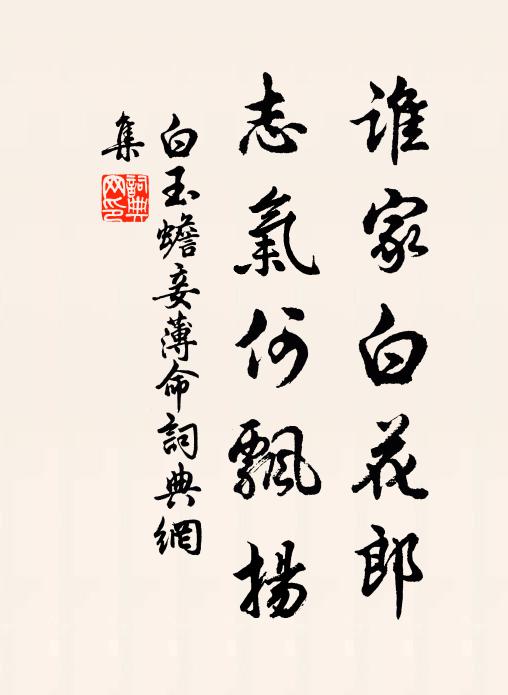 誰家白花郎
志氣何飄揚
白玉蟾妾薄命詞典網
集
詞典
网印